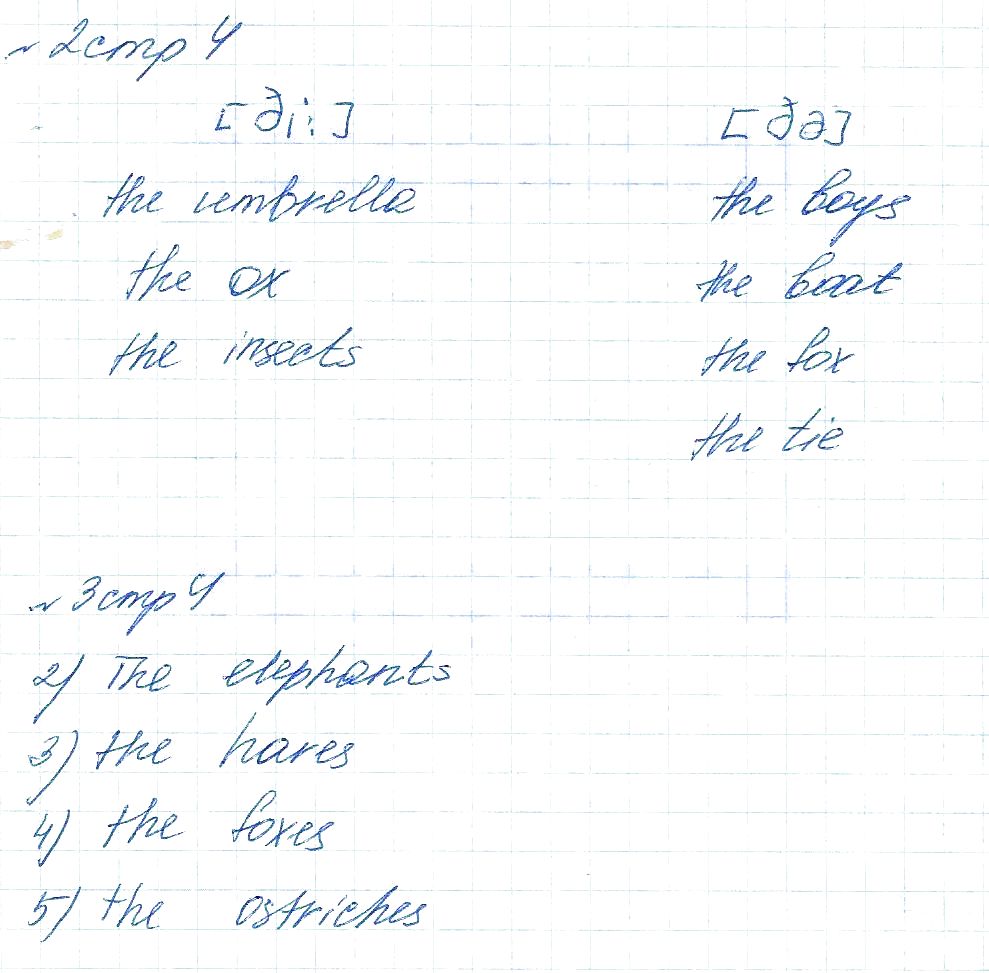 ~ 2 стр 4
[ði:] [ðə]
the umbrella the boys
the ox the boat
the insects the fox
the tie
~ 3 стр 4
2) The elephants
3) the hares
4) the foxes
5) the ostriches